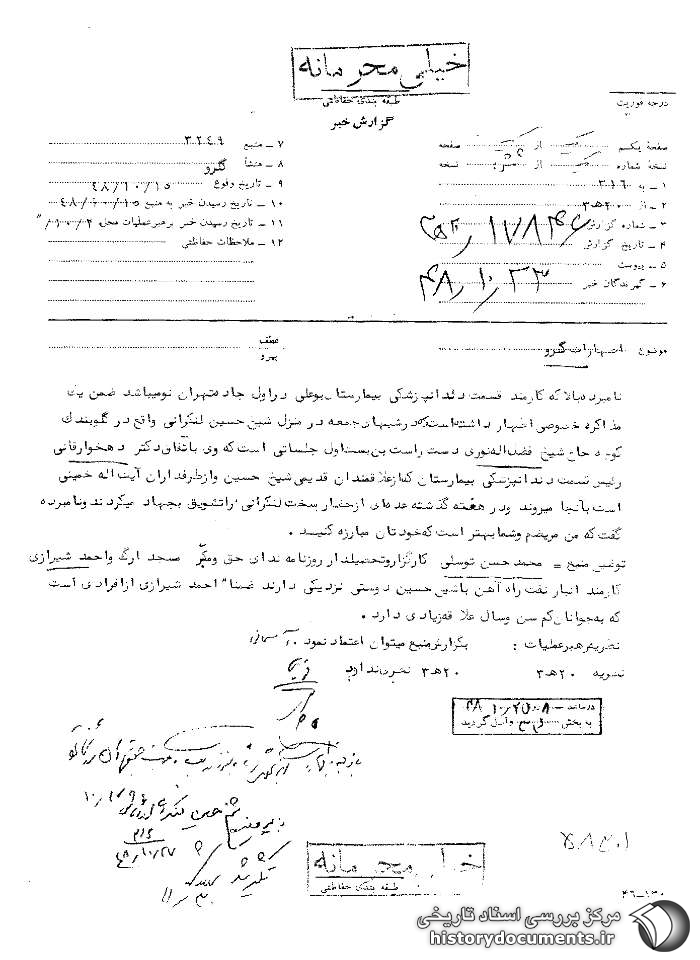 خیلی محرمانه
طبقه بندی حفاظتی
گزارش خبر
درجه فوریت
صفحه یکم از صفحه
نسخه شماره از نسخه
۱ – به ۳۱۶
۲ – از ۲۰ه۳
۳ – شماره گزارش ۱۷۸۴۶
۴ – تاریخ گزارش
۵ – پیوست ۴۸/۱۰/۲۳
۶ – گیرندگان خبر
۷ – منبع ۳۲۴۹
۸ – منشأ گترو
۹ – تاریخ وقوع
۱۰ – تاریخ رسیدن خبر به منبع
۱۱ – تاریخ رسیدن خبر برهبر عملیات محل
۱۲ – ملاحظات حفاظتی
موضوع اظهارات گترو
عطف
پیرو
نامبرده بالا که کارمند قسمت دندانپزشکی بیمارستان بوعلی در اول جاده تهران نو میباشد ضمن یک
مذاکره خصوصی اظهار داشته است که در شبهای جمعه در منزل شیخ حسین لنکرانی واقع در گلوبندک
کوچه حاج شیخ فضل اله نوری دست راست بن بست اول جلساتی است که وی باتفاق دکتر دهخوارقانی
رئیس قسمت دندانپزشکی بیمارستان که از علاقمندان قدیمی شیخ حسین و از طرفداران آیت اله خمینی
است بآنجا میروند و در هفته گذشته عده ای از حضار سخت لنکرانی را تشویق بجهاد میکردند و نامبرده
گفت که من مریضم و شما بهتر است که خودتان مبارزه کنید .
توضیح منبع = محمد حسن توسلی کارگزار و تحصیلدار روزنامه ندای حق و مکبر مسجد ارگ و احمد شیرازی
کارمند انبار نفت راه آهن با شیخ حسین دوستی نزدیکی دارند ضمنا" احمد شیرازی از افرادی است
که بجوانان کم سن و سال علاقه زیادی دارد .
نظریه رهبر عملیات : بگزارش منبع میتوان اعتماد نمود .
نظریه ۲۰ه۳ ۲۰ه۳ نظری ندارد
به بخش واصل گردید
شیخ حسین لنکرانی
۳۱۶
۴۸/۱۰/۲۷
خیلی محرمانه
طبقه بندی حفاظتی
۴۶-۱۳۰
مرکز بررسی اسناد تاریخی
historydocuments.ir